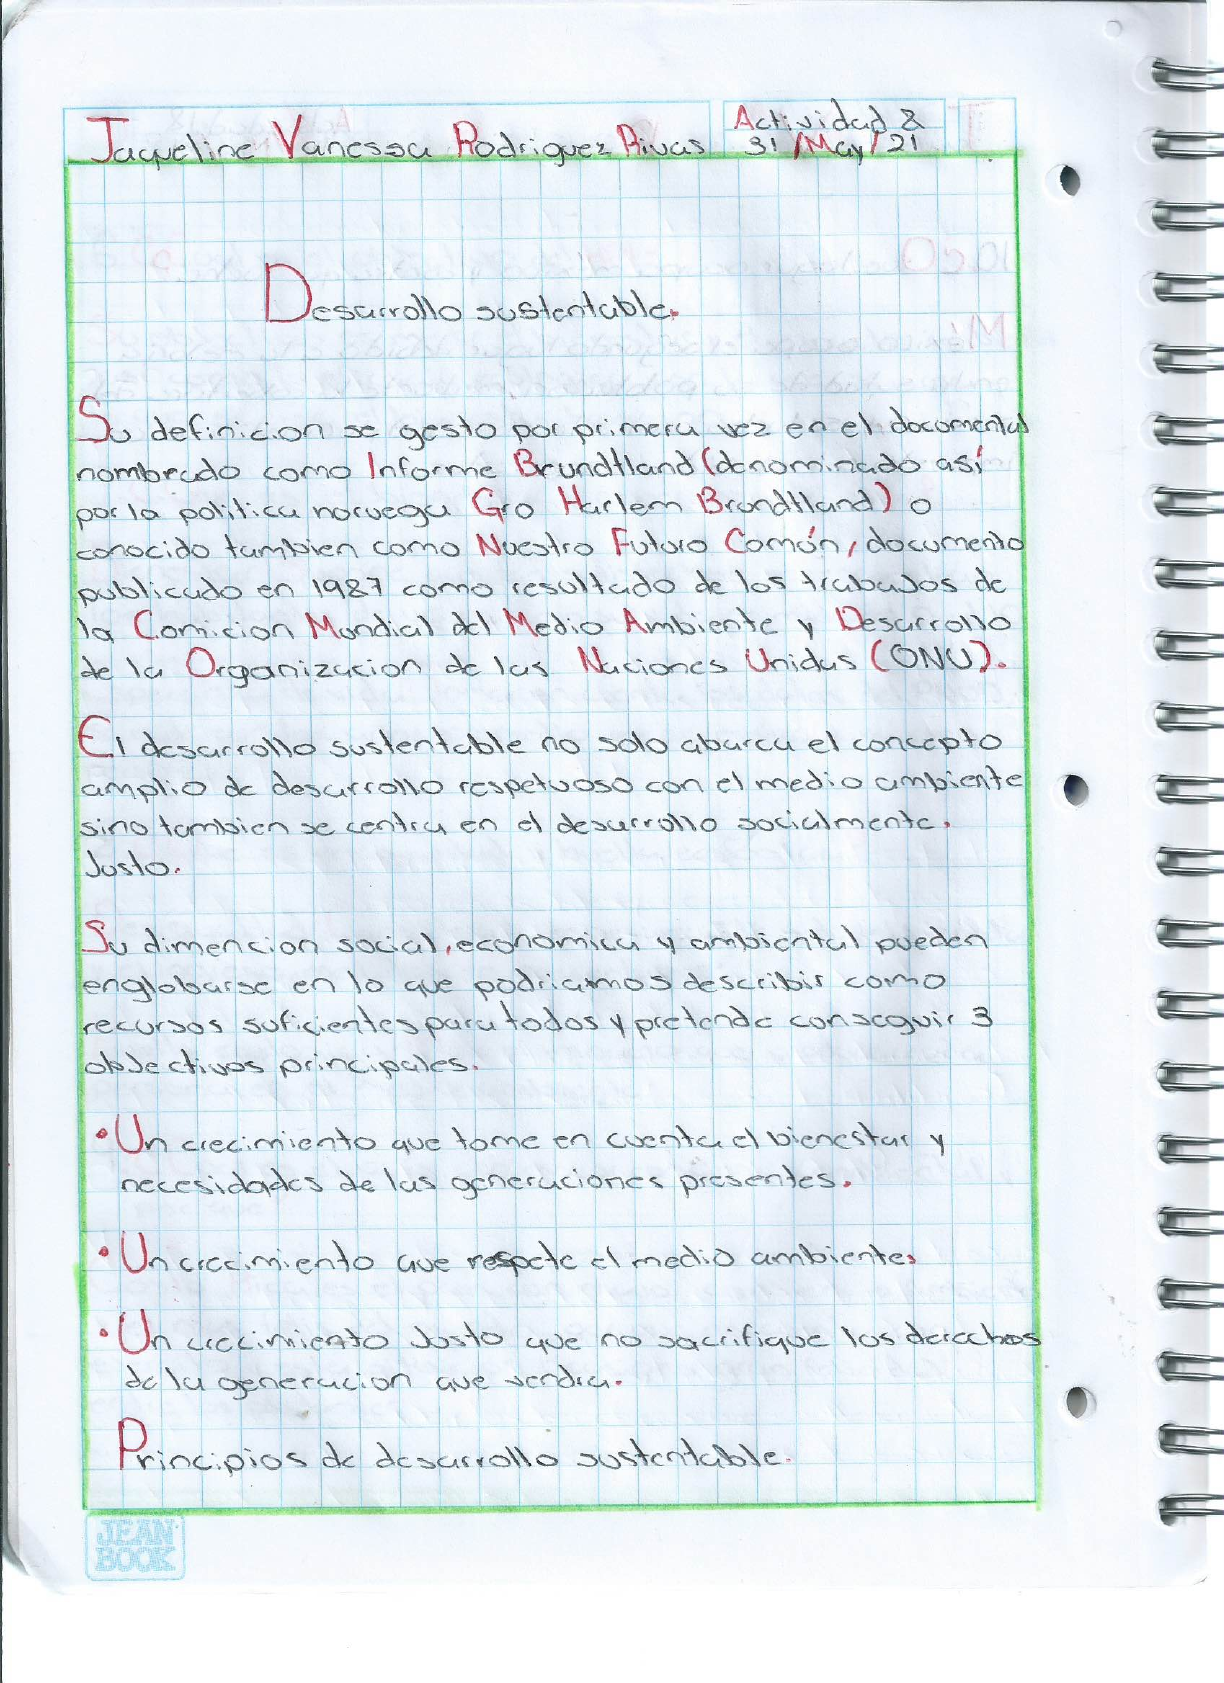 Jaqueline Vanessa Rodriguez Rivas
Actividad 8
31/May/21
Desarrollo sustentable.
Su definicion se gesto por primera vez en el documental
nombrado como Informe Brundtland (denominado así
por la politica noruega Gro Harlem Brundtland) o
conocido tambien como Nuestro Futuro Común, documento
publicado en 1987 como resultado de los trabajos de
la Comicion Mundial del Medio Ambiente y Desarrollo
de la Organizacion de las Naciones Unidas (ONU).
El desarrollo sustentable no solo abarca el concepto
amplio de desarrollo respetuoso con el medio ambiente
sino tambien se centra en el desarrollo socialmente.
Justo.
Su dimencion social, economica y ambiental pueden
englobarse en lo que podriamos describir como
recursos suficientes para todos y pretende conseguir 3
objectivos principales.
• Un crecimiento que tome en cuenta el bienestar y
necesidades de las generaciones presentes.
• Un crecimiento que respete el medio ambiente.
• Un crecimiento Justo que no sacrifique los derechos
de la generacion que vendra.
Principios de desarrollo sustentable.
JEAN
BOOK